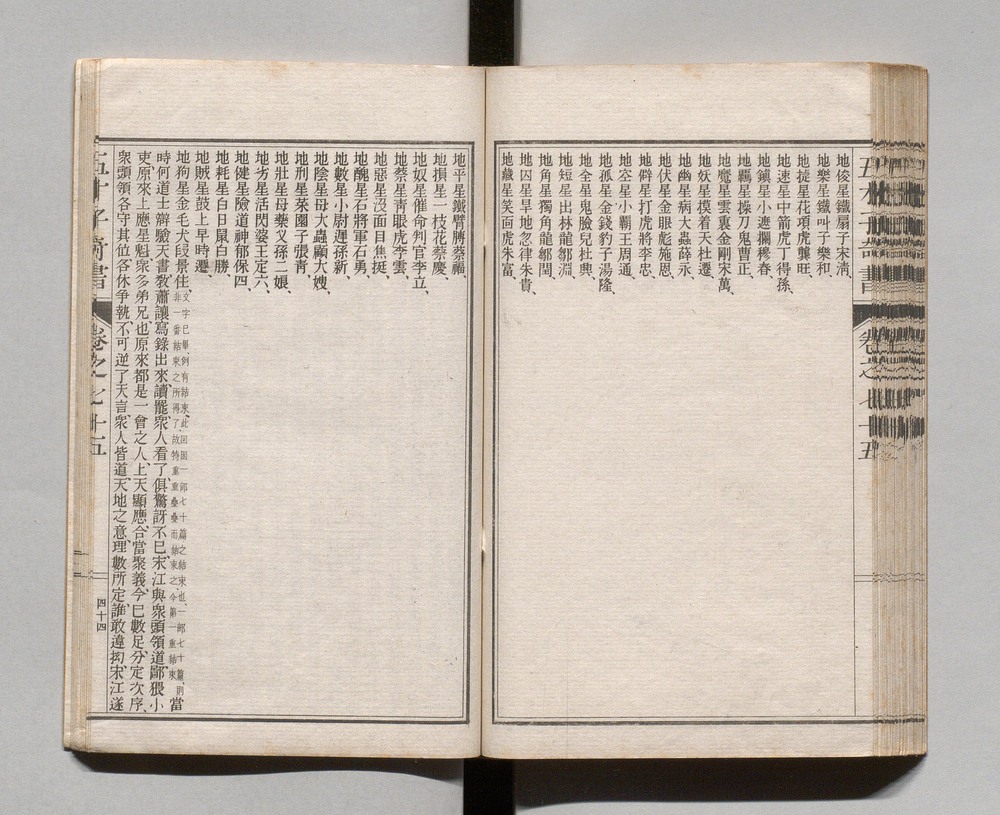 地俊星鐵扇子宋淸、
地樂星鐵叫子樂和、
地捷星花項虎龔旺、
地速星中箭虎丁得孫、
地鎭星小遮攔穆春、
地羈星操刀鬼曹正、
地魔星雲裏金剛宋萬、
地妖星摸着天杜遷、
地幽星病大蟲薛永、
地伏星金眼彪施恩、
地僻星打虎將李忠、
地空星小霸王周通、
地孤星金錢豹子湯隆、
地全星鬼臉兒杜興、
地短星出林龍鄒淵、
地角星獨角龍鄒閏、
地囚星旱地忽律朱貴、
地藏星笑面虎朱富、
地平星鐵臂膊蔡福、
地損星一枝花蔡慶、
地奴星催命判官李立、
地察星靑眼虎李雲、
地惡星沒面目焦挺、
地醜星石將軍石勇、
地數星小尉遲孫新、
地陰星母大蟲顧大嫂、
地刑星菜園子張靑、
地壯星母藥叉孫二娘、
地劣星活閃婆王定六、
地健星險道神郁保四、
地耗星白日鼠白勝、
地賊星鼓上早時遷
地狗星金毛犬段景住文字已畢、例有結束、此回固一部七十篇之結束也、一部七十篇、則非一番結束之所得了、故特重重疊疊而結束之、今第一重結束當
時何道士辯驗天書敎蕭讓寫錄出來、讀罷、衆人看了、俱驚訝不已、宋江與衆頭領道、鄙猥小
吏、原來上應星魁、衆多弟兄也原來都是一會之人、上天顯應、合當聚義、今已數足、分定次序、
衆頭領各守其位、各休爭執、不可逆了天言、衆人皆道、天地之意、理數所定、誰敢違拗、宋江遂
五才子奇書
卷之七十五
四十四